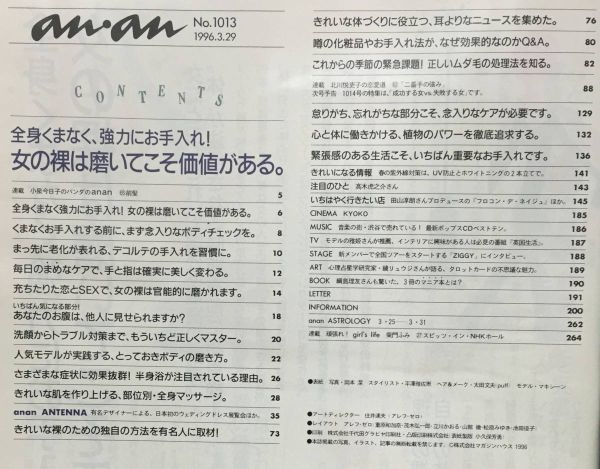 an・an
No.1013
1996.3.29
CONTENTS
全身くまなく、強力にお手入れ!
女の裸は磨いてこそ価値がある。
連載 小泉今日子のパンダのanan
5
全身くまなく強力にお手入れ! 女の裸は磨いてこそ価値がある。 6
くまなくお手入れする前に、まず念入りなボディチェックを。 8
まっ先に老化が表れる、デコルテの手入れを習慣に。 10
毎日のまめなケアで、手と指は確実に美しく変わる。 12
充ちたりた恋とSEXで、女の裸は官能的に磨かれます。 14
いちばん気になる部分!
あなたのお腹は、他人に見せられますか? 18
洗顔からトラブル対策まで、もういちど正しくマスター。 20
人気モデルが実践する、とっておきボディの磨き方。 22
さまざまな症状に効果抜群! 半身浴が注目されている理由。 26
きれいな肌を作り上げる、部位別・全身マッサージ。 28
anan ANTENNA 有名デザイナーによる、日本初のウェディングドレス展覧会ほか。 35
きれいな裸のための独自の方法を有名人に取材! 73
きれいな体づくりに役立つ、耳よりなニュースを集めた。 76
噂の化粧品やお手入れ法が、なぜ効果的なのかQ&A。 80
これからの季節の緊急課題! 正しいムダ毛の処理法を知る。 82
連載 北川悦吏子の恋愛道 ㊷「二番手の強み」
次号予告 1014号の特集は、「成功する女vs.失敗する女」です。 88
怠りがち、忘れがちな部分こそ、念入りなケアが必要です。 129
心と体に働きかける、植物のパワーを徹底追求する。 132
緊張感のある生活こそ、いちばん重要なお手入れです。 136
きれいになる情報 春の紫外線対策は、UV防止とホワイトニングの2本立てで。 141
注目のひと 高木虎之介さん 143
いちはやく行きたい店 田山淳朗さんプロデュースの「フロコン・ド・ネイジュ」ほか。 145
CINEMA KYOKO 185
MUSIC 音楽の街・渋谷で売れている! 最新ポップスCDベストテン。 186
TV モデルの雅姫さんが推薦、インテリアに興味がある人は必見の番組「英国生活」。 187
STAGE 新メンバーで全国ツアーをスタートする「ZIGGY」にインタビュー。 188
ART 心理占星学研究家・鏡リュウジさんが語る、タロットカードの不思議な魅力。 189
BOOK 綱島理友さんも驚いた、3冊のマニア本とは? 190
LETTER 191
INFORMATION 200
anan ASTROLOGY 3・25——3・31 262
連載 頑張れ! girl's life 柴門ふみ ㉗スピッツ・イン・NHKホール 264
●表紙 写真・岡本 スタイリスト・平澤雅佐恵 ヘア&メーク・太田文夫(puff) モデル・マキシーン
●アートディレクター 住井達夫(アレフ・ゼロ)
●レイアウト アレフ・ゼロ
●印刷 株式会社千代田グラビヤ印刷社・凸版印刷株式会社
●本誌掲載の写真、イラスト、記事の無断転載を禁じます。 ©株式会社マガジンハウス 1996